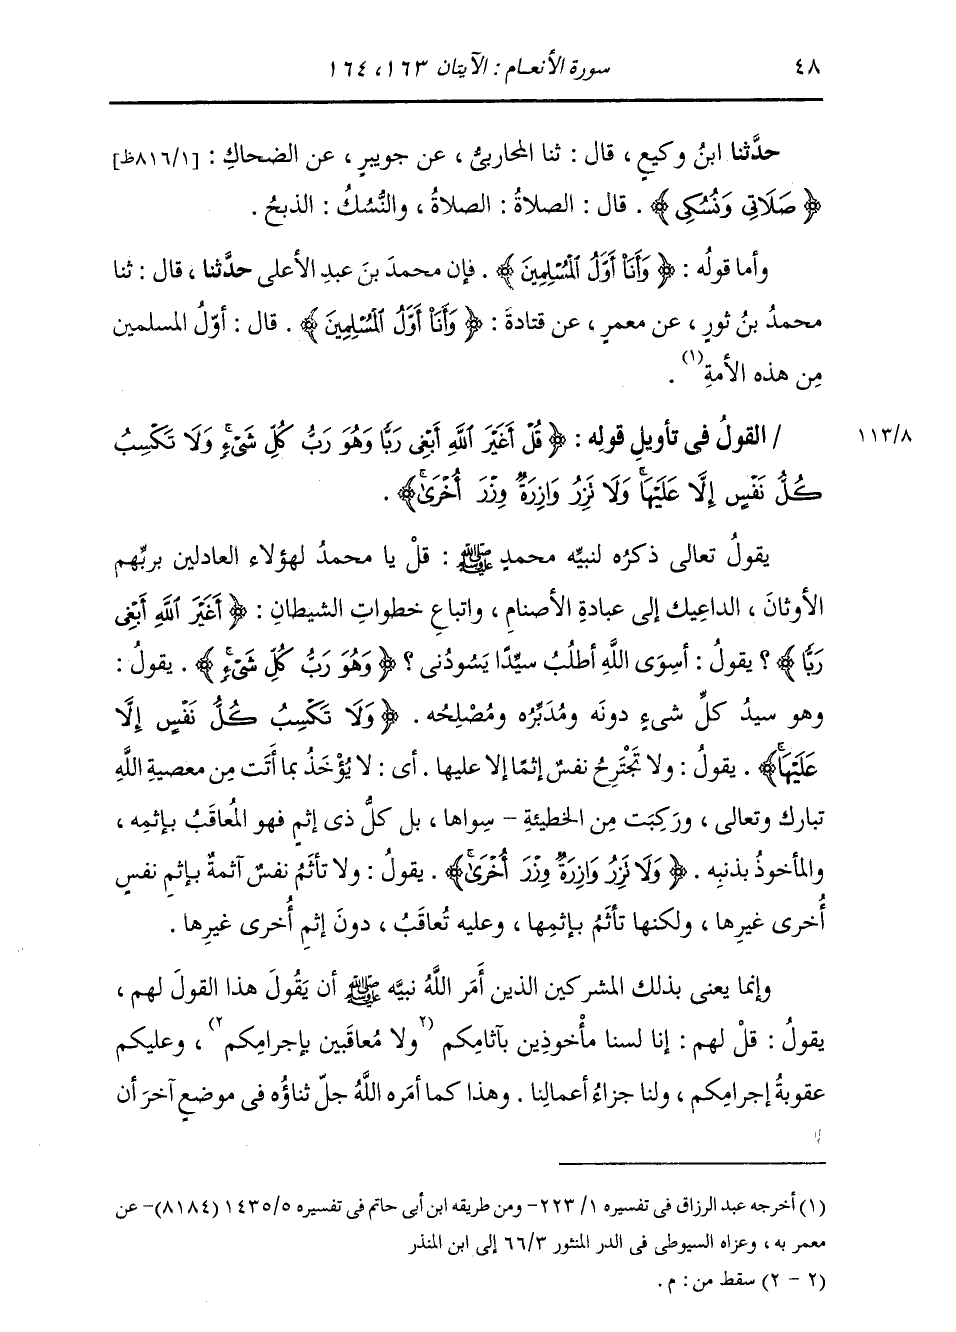 ٤٨ سورة الأنعـام : الآيتان ١٦٣، ١٦٤
حدَّثنا ابنُ وكيعٍ ، قال : ثنا المحاربىُّ ، عن جويبرٍ ، عن الضحاكِ : [٨١٦/١ظ]
﴿ صَلَاتِى وَنُسُكِى ﴾ . قال : الصلاةُ : الصلاةُ ، والنُّسُكُ : الذبحُ .
وأما قولُه : ﴿ وَأَنَا۠ أَوَّلُ ٱلْمُسْلِمِينَ ﴾ . فإن محمدَ بنَ عبدِ الأعلى حدَّثنا ، قال : ثنا
محمدُ بنُ ثورٍ ، عن معمرٍ ، عن قتادةَ : ﴿ وَأَنَا۠ أَوَّلُ ٱلْمُسْلِمِينَ ﴾ . قال : أوّلُ المسلمين
مِن هذه الأمةِ(١) .
/ القولُ فى تأويلِ قولِه : ﴿ قُلْ أَغَيْرَ ٱللَّهِ أَبْغِى رَبًّا وَهُوَ رَبُّ كُلِّ شَىْءٍۚ وَلَا تَكْسِبُ ١١٣/٨
كُلُّ نَفْسٍ إِلَّا عَلَيْهَاۚ وَلَا تَزِرُ وَازِرَةٌ وِزْرَ أُخْرَىٰۚ ﴾ .
يقولُ تعالى ذكرُه لنبيِّه محمدٍ ﷺ : قلْ يا محمدُ لهؤلاء العادلين بربِّهم
الأوثانَ ، الداعِيك إلى عبادةِ الأصنامِ ، واتباعِ خطواتِ الشيطانِ : ﴿ أَغَيْرَ ٱللَّهِ أَبْغِى
رَبًّا ﴾ ؟ يقولُ : أسِوَى اللَّهِ أطلُبُ سيِّدًا يَسُودُنى ؟ ﴿ وَهُوَ رَبُّ كُلِّ شَىْءٍۚ ﴾ . يقولُ :
وهو سيدُ كلِّ شىءٍ دونَه ومُدَبِّرُه ومُصْلِحُه . ﴿ وَلَا تَكْسِبُ كُلُّ نَفْسٍ إِلَّا
عَلَيْهَاۚ ﴾ . يقولُ : ولا تَجْتَرِحُ نفسٌ إثمًا إلا عليها . أى : لا يُؤْخَذُ بما أتَت مِن معصيةِ اللَّهِ
تبارك وتعالى ، ورَكِبَت مِن الخطيئةِ - سِواها ، بل كلُّ ذى إثمٍ فهو المُعاقَبُ بإثمِه ،
والمأخوذُ بذنبِه . ﴿ وَلَا تَزِرُ وَازِرَةٌ وِزْرَ أُخْرَىٰۚ ﴾ . يقولُ : ولا تأثَمُ نفسٌ آثمةٌ بإثمِ نفسٍ
أُخرى غيرِها ، ولكنها تأثَمُ بإثمِها ، وعليه تُعاقَبُ ، دونَ إثمِ أُخرى غيرِها .
وإنما يعنى بذلك المشركين الذين أمَر اللَّهُ نبيَّه ﷺ أن يَقُولَ هذا القولَ لهم ،
يقولُ : قلْ لهم : إنا لسنا مأْخوذِين بآثامِكم (٢ولا مُعاقَبين بإجرامِكم٢) ، وعليكم
عقوبةُ إجرامِكم ، ولنا جزاءُ أعمالِنا . وهذا كما أمَره اللَّهُ جلّ ثناؤُه فى موضعٍ آخرَ أن
(١) أخرجه عبد الرزاق فى تفسيره ١/ ٢٢٣- ومن طريقه ابن أبى حاتم فى تفسيره ١٤٣٥/٥ (٨١٨٤)- عن
معمر به ، وعزاه السيوطى فى الدر المنثور ٦٦/٣ إلى ابن المنذر
(٢ - ٢) سقط من : م .